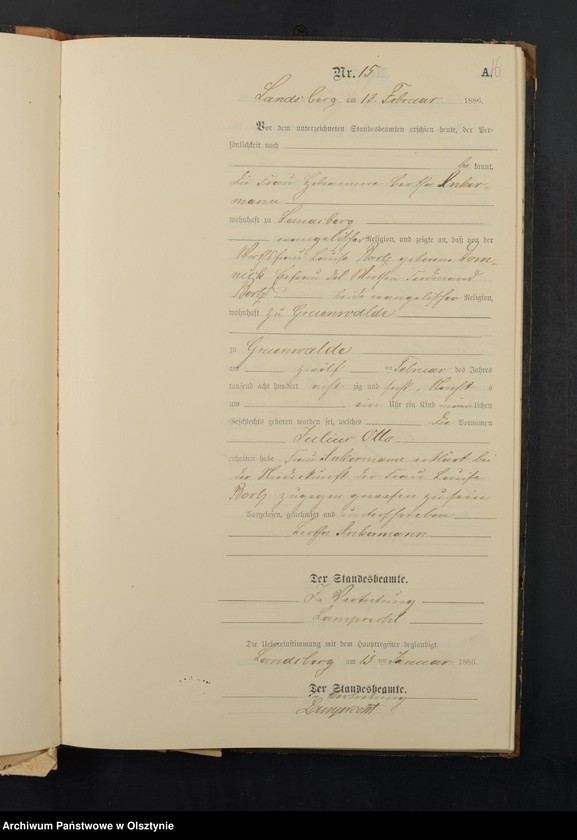 Nr. 15
A. 16
Landsberg am 13. Februar 1886.
Vor dem unterzeichneten Standesbeamten erschien heute, der Per-
sönlichkeit nach
be kannt,
die Frau Hebamme Bertha Ankер-
mann
wohnhaft zu
evangelischer Religion, und zeigte an, daß von der
Wirthsfrau Louise Bortz geborene Dom-
nick Ehefrau des Wirthen Ferdinand
Bortz beide evangelischer Religion,
wohnhaft zu Gruenwalde
zu Gruenwalde
am zwölf ten Februar des Jahres
tausend acht hundert acht zig und sechs, Nachts
um ein Uhr ein Kind männlichen
Geschlechts geboren worden sei, welches die Vornamen
Julius Otto
erhalten habe. Frau Ankermann erklärt bei
der Niederkunft der Frau Louise
Bortz zugegen gewesen zu sein
Vorgelesen, genehmigt und unterschrieben
Bertha Ankermann
Der Standesbeamte.
In Vertretung
Lamprecht
Die Uebereinstimmung mit dem Hauptregister beglaubigt.
Landsberg am 13 ten Januar 1886.
Der Standesbeamte.
In Vertretung
Lamprecht
Archiwum Państwowe w Olsztynie